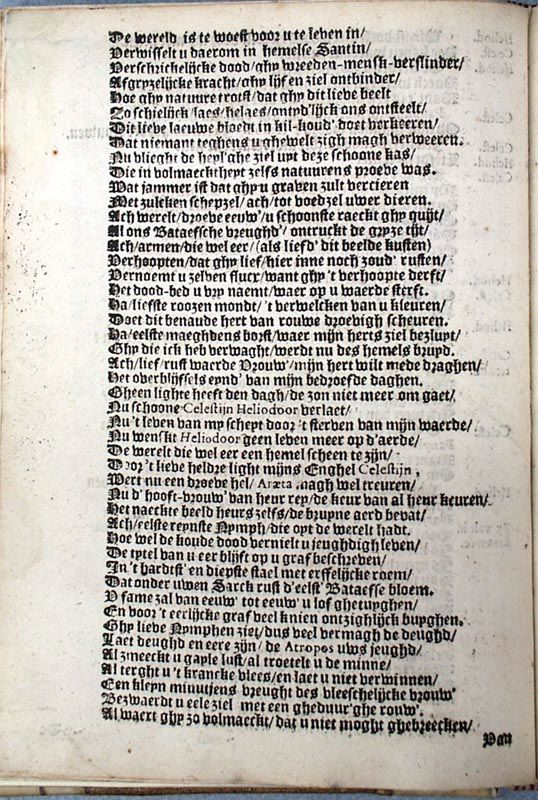 De wereld is te woest voor u te leven in/
Verwisselt u daerom in hemelse Santin/
Verschrickelijcke dood/ ghy wreeden-mensk-verslinder/
Afgryzelijcke kracht/ ghy lijf en ziel ontbinder/
Hoe ghy natuure trotst/ dat ghy dit lieve beelt
Zo schielijck laes/ helaes/ ontyd'lijck ons ontsteelt/
Dit lieve laeuwe bloedt in kil-koud' doet verkeeren/
Dat niemant teghens u ghewelt zigh magh verweeren.
Nu vlieght de heyl'ghe ziel uyt deze schoone kas/
Die in volmaecktheyt zelfs natuurens proeve was.
Wat jammer ist dat ghy u graven zult vercieren
Met zulcken schepzel/ ach/ tot voedzel uwer dieren.
Ach werelt/ droeve eeuw'/ u schoonste raeckt ghy quijt/
Al ons Bataefsche vreughd'/ ontruckt de gryze tijt/
Ach/ armen/ die wel eer/ (als liefd' dit beelde kusten)
Verhoopten/ dat ghy lief/ hier inne noch zoud' rusten/
Vernoemt u zelven flucx/ want ghy 't verhoopte derft/
Het dood-bed u vry naemt/ waer op u waerde sterft.
Ha/ liefste roozen mondt/ 't verwelcken van u kleuren/
Doet dit benaude hert van rouwe droevigh scheuren.
Ha/ eelste maeghdens borst/ waer mijn herts ziel bezluyt/
Ghy die ick heb verwaght/ werdt nu des hemels bruyd.
Ach/ lief/ rust waerde Vrouw'/ mijn hert wilt mede draghen/
Het overblijfsels eynd' van mijn bedroefde daghen.
Gheen lighte heeft den dagh/ de zon niet meer om gaet/
Nu schoone Celestijn Heliodoor verlaet/
Nu 't leven van my scheyt door 't sterven van mijn waerde/
Nu wenskt Heliodoor geen leven meer op d'aerde/
De werelt die wel eer een hemel scheen te zijn/
Door 't lieve heldre light mijns Enghel Celestijn,
Wert nu een droeve hel/ Aræta magh wel treuren/
Nu d' hooft-vrouw' van heur rey/ de keur van al heur keuren/
Het naeckte beeld heurs zelfs/ de bruyne aerd bevat/
Ach/ eelste reynste Nymph/ die oyt de werelt hadt.
Hoe wel de koude dood vernielt u jeughdigh leven/
De tytel van u eer blijft op u graf beschreven/
In 't hardtst' en diepste stael met erffelijcke roem/
Dat onder uwen Sarck rust d'eelst' Bataefse bloem.
V fame zal van eeuw' tot eeuw' u lof ghetuyghen/
En voor 't eerlijcke graf veel knien ontzighlijck buyghen.
Ghy lieve Nymphen ziet/ dus veel vermagh de deughd/
Laet deughd en eere zijn/ de Atropos uws jeughd/
Al zmeeckt u gayle lust/ al troetelt u de minne/
Al terght u 't krancke vlees/ en laet u niet verwinnen/
Een kleyn minutjens vreught des vleeschelijcke vrouw'
Bezwaerdt u eele ziel met een gheduur'ghe rouw'.
Al waert ghy zo volmaeckt/ dat u niet moght ghebreecken/
Van